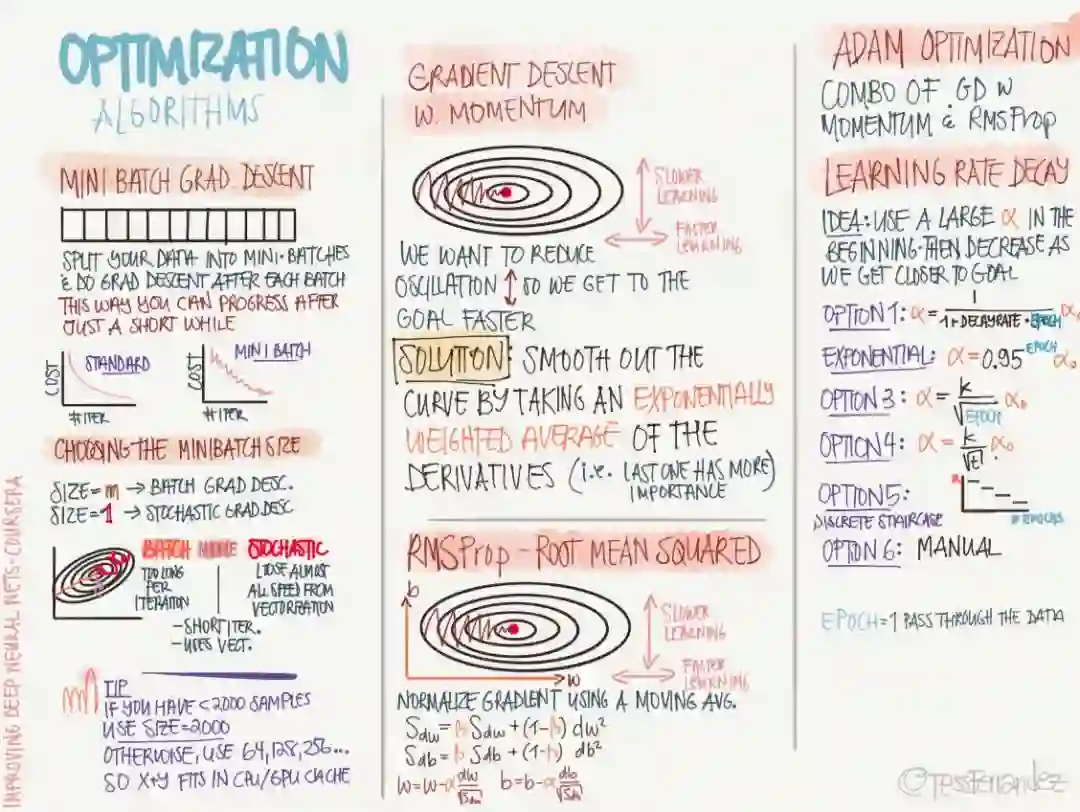 OPTIMIZATION
ALGORITHMS
MINI BATCH GRAD. DESCENT
SPLIT YOUR DATA INTO MINI-BATCHES
& DO GRAD DESCENT AFTER EACH BATCH
THIS WAY YOU CAN PROGRESS AFTER
JUST A SHORT WHILE
COST
STANDARD
# ITER
COST
MINI BATCH
# ITER
CHOOSING THE MINIBATCH SIZE
SIZE=m → BATCH GRAD DESC.
SIZE=1 → STOCHASTIC GRAD.DESC
BATCH
STOCHASTIC
TOO LONG
PER
ITERATION
LOSE ALMOST
ALL SPEED FROM
VECTORIZATION
-SHORT ITER.
-USES VECT.
TIP
IF YOU HAVE < 2000 SAMPLES
USE SIZE=2000
OTHERWISE, USE 64, 128, 256...
SO X+Y FITS IN CPU/GPU CACHE
IMPROVING DEEP NEURAL NETS-COURSERA
GRADIENT DESCENT
W. MOMENTUM
SLOWER
LEARNING
FASTER
LEARNING
WE WANT TO REDUCE
OSCILLATION ↕ SO WE GET TO THE
GOAL FASTER
SOLUTION: SMOOTH OUT THE
CURVE BY TAKING AN EXPONENTIALLY
WEIGHTED AVERAGE OF THE
DERIVATIVES (i.e. LAST ONE HAS MORE)
IMPORTANCE
RMSProp - ROOT MEAN SQUARED
b
SLOWER
LEARNING
FASTER
LEARNING
w
NORMALIZE GRADIENT USING A MOVING AVG.
Sdw = β Sdw + (1-β) dw²
Sdb = β Sdb + (1-β) db²
w = w-α dw/√Sdw b = b-α db/√Sdb
ADAM OPTIMIZATION
COMBO OF GD W
MOMENTUM & RMSProp
LEARNING RATE DECAY
IDEA: USE A LARGE α IN THE
BEGINNING. THEN DECREASE AS
WE GET CLOSER TO GOAL
OPTION 1: α = 1/(1+DECAYRATE·EPOCH) α₀
EXPONENTIAL: α = 0.95^EPOCH α₀
OPTION 3: α = k/√EPOCH α₀
OPTION 4: α = k/√t · α₀
OPTION 5:
DISCRETE STAIRCASE
α
# EPOCHS
OPTION 6: MANUAL
EPOCH = 1 PASS THROUGH THE DATA
©TessFerrandez